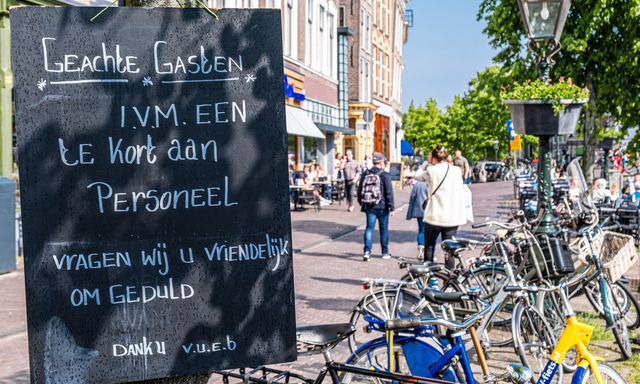 Geachte Gasten
I.V.M. EEN
te kort aan
Personeel
vragen wij u vriendelijk
om geduld
Dank u v.u.e.b